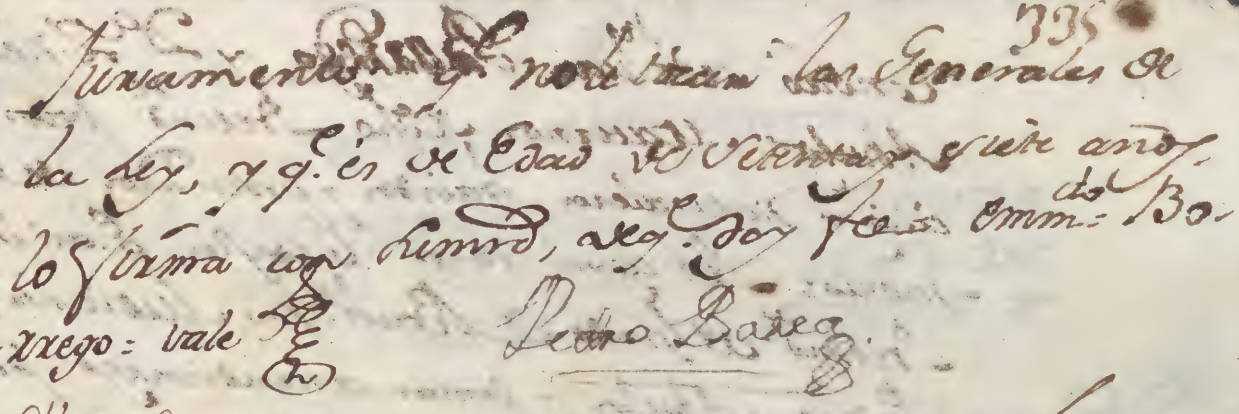 335
Juramento y q.e no le tocan las Generales de
la Ley, y q.e es de Edad de Setenta y siete años.
lo firma con sumrd, deq.e doy fee = Emm.do = Bo-
rrego = vale
Pedro Barea